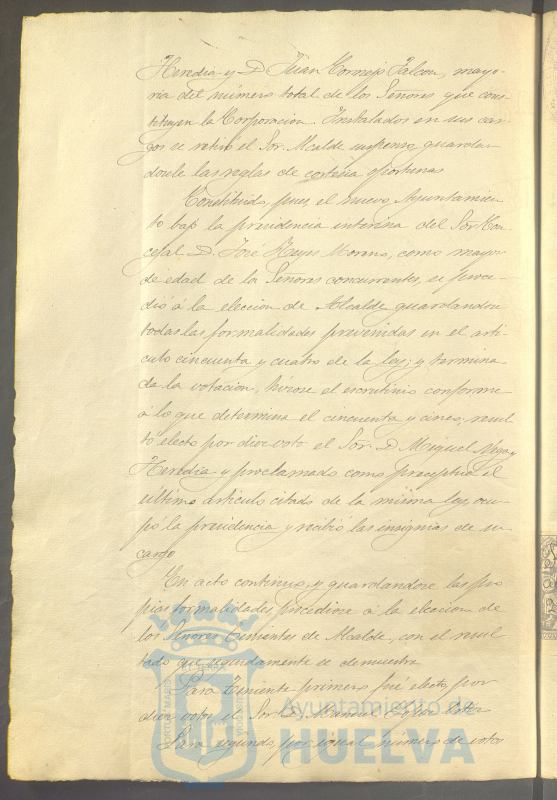 Heredia y D. Juan Cornejo Falcon, mayo-
ria del número total de los Señores que cons-
tituyen la Corporacion. Instalados en sus car-
gos se retiró el Sor. Alcalde suspenso, guardan-
dosele las reglas de cortesia oportunas
Constituido, pues, el nuevo Ayuntamien-
to bajo la presidencia interina del Sor Con-
cejal D. José Reyes Moreno, como mayor
de edad de los Señores concurrentes, se proce-
dió á la eleccion de Alcalde guardandose
todas las formalidades prevenidas en el arti-
culo cincuenta y cuatro de la ley; y termina-
da la votacion, hizose el escrutinio conforme
a lo que determina el cincuenta y cinco, resul-
tó electo por diez voto el Sor. D. Miguel y
Heredia y proclamado como preceptua el
último articulo citado de la misma ley, ocu-
pó la presidencia y recibió las insignias de su
cargo
En acto continuo, y guardandose las pro-
pias formalidades procediose a la eleccion de
los Señores Tenientes de Alcalde, con el resul-
tado que seguidamente se demuestra
Para Teniente primero fué electo, por
diez votos el Sor D. Manuel
Para segundo, por igual número de votos
Ayuntamiento de
HUELVA